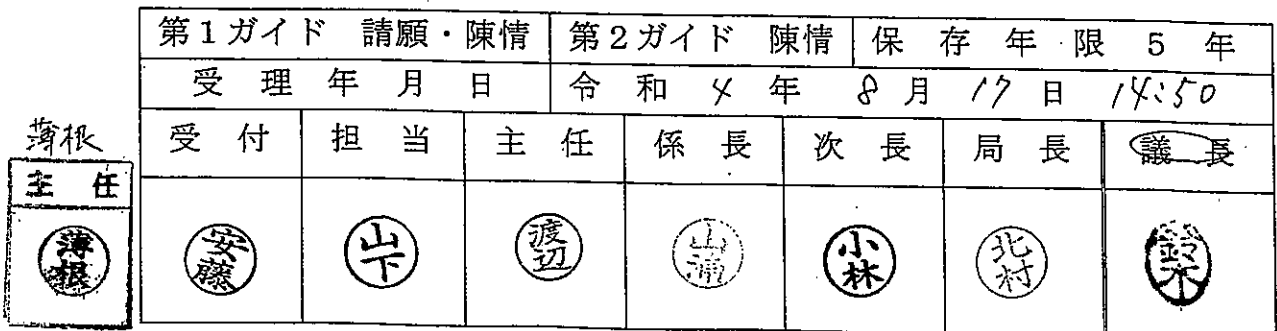 第1ガイド 請願・陳情 第2ガイド 陳情 保存年限 5年
受理年月日 令和4年 8月 17日 14:50
薄根
主任 受付 担当 主任 係長 次長 局長 議長
薄根 安藤 山下 渡辺 山浦 小林 北村 鈴木